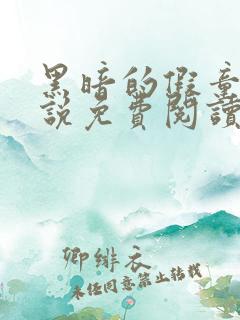 黑暗的假童
說免費閱讀
卿緋衣
未经同意禁止转载